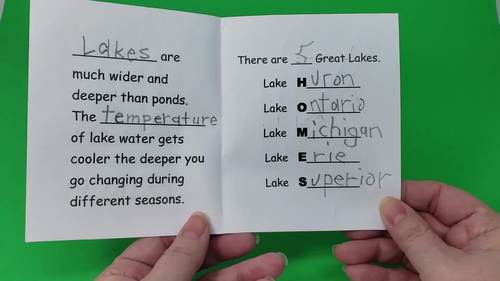 Lakes are
much wider and
deeper than ponds.
The temperature
of lake water gets
cooler the deeper you
go changing during
different seasons.
There are 5 Great Lakes.
Lake Huron
Lake Ontario
Lake Michigan
Lake Erie
Lake Superior